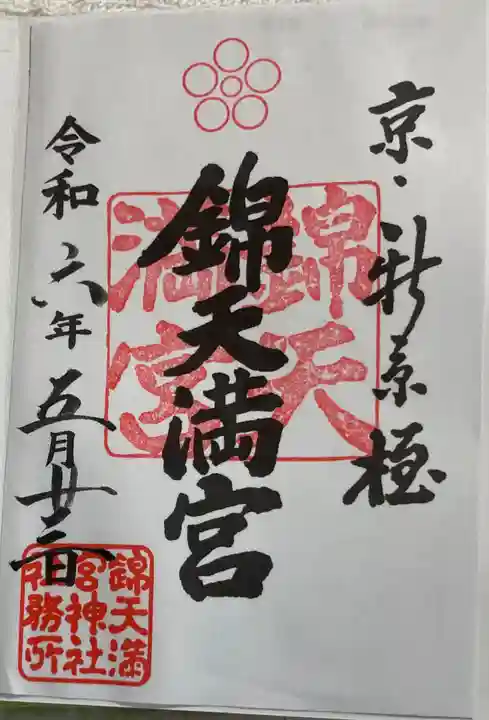 京・新京極
錦天満宮
錦天
満宮
令和六年五月廿
錦天満
宮神社
社務所